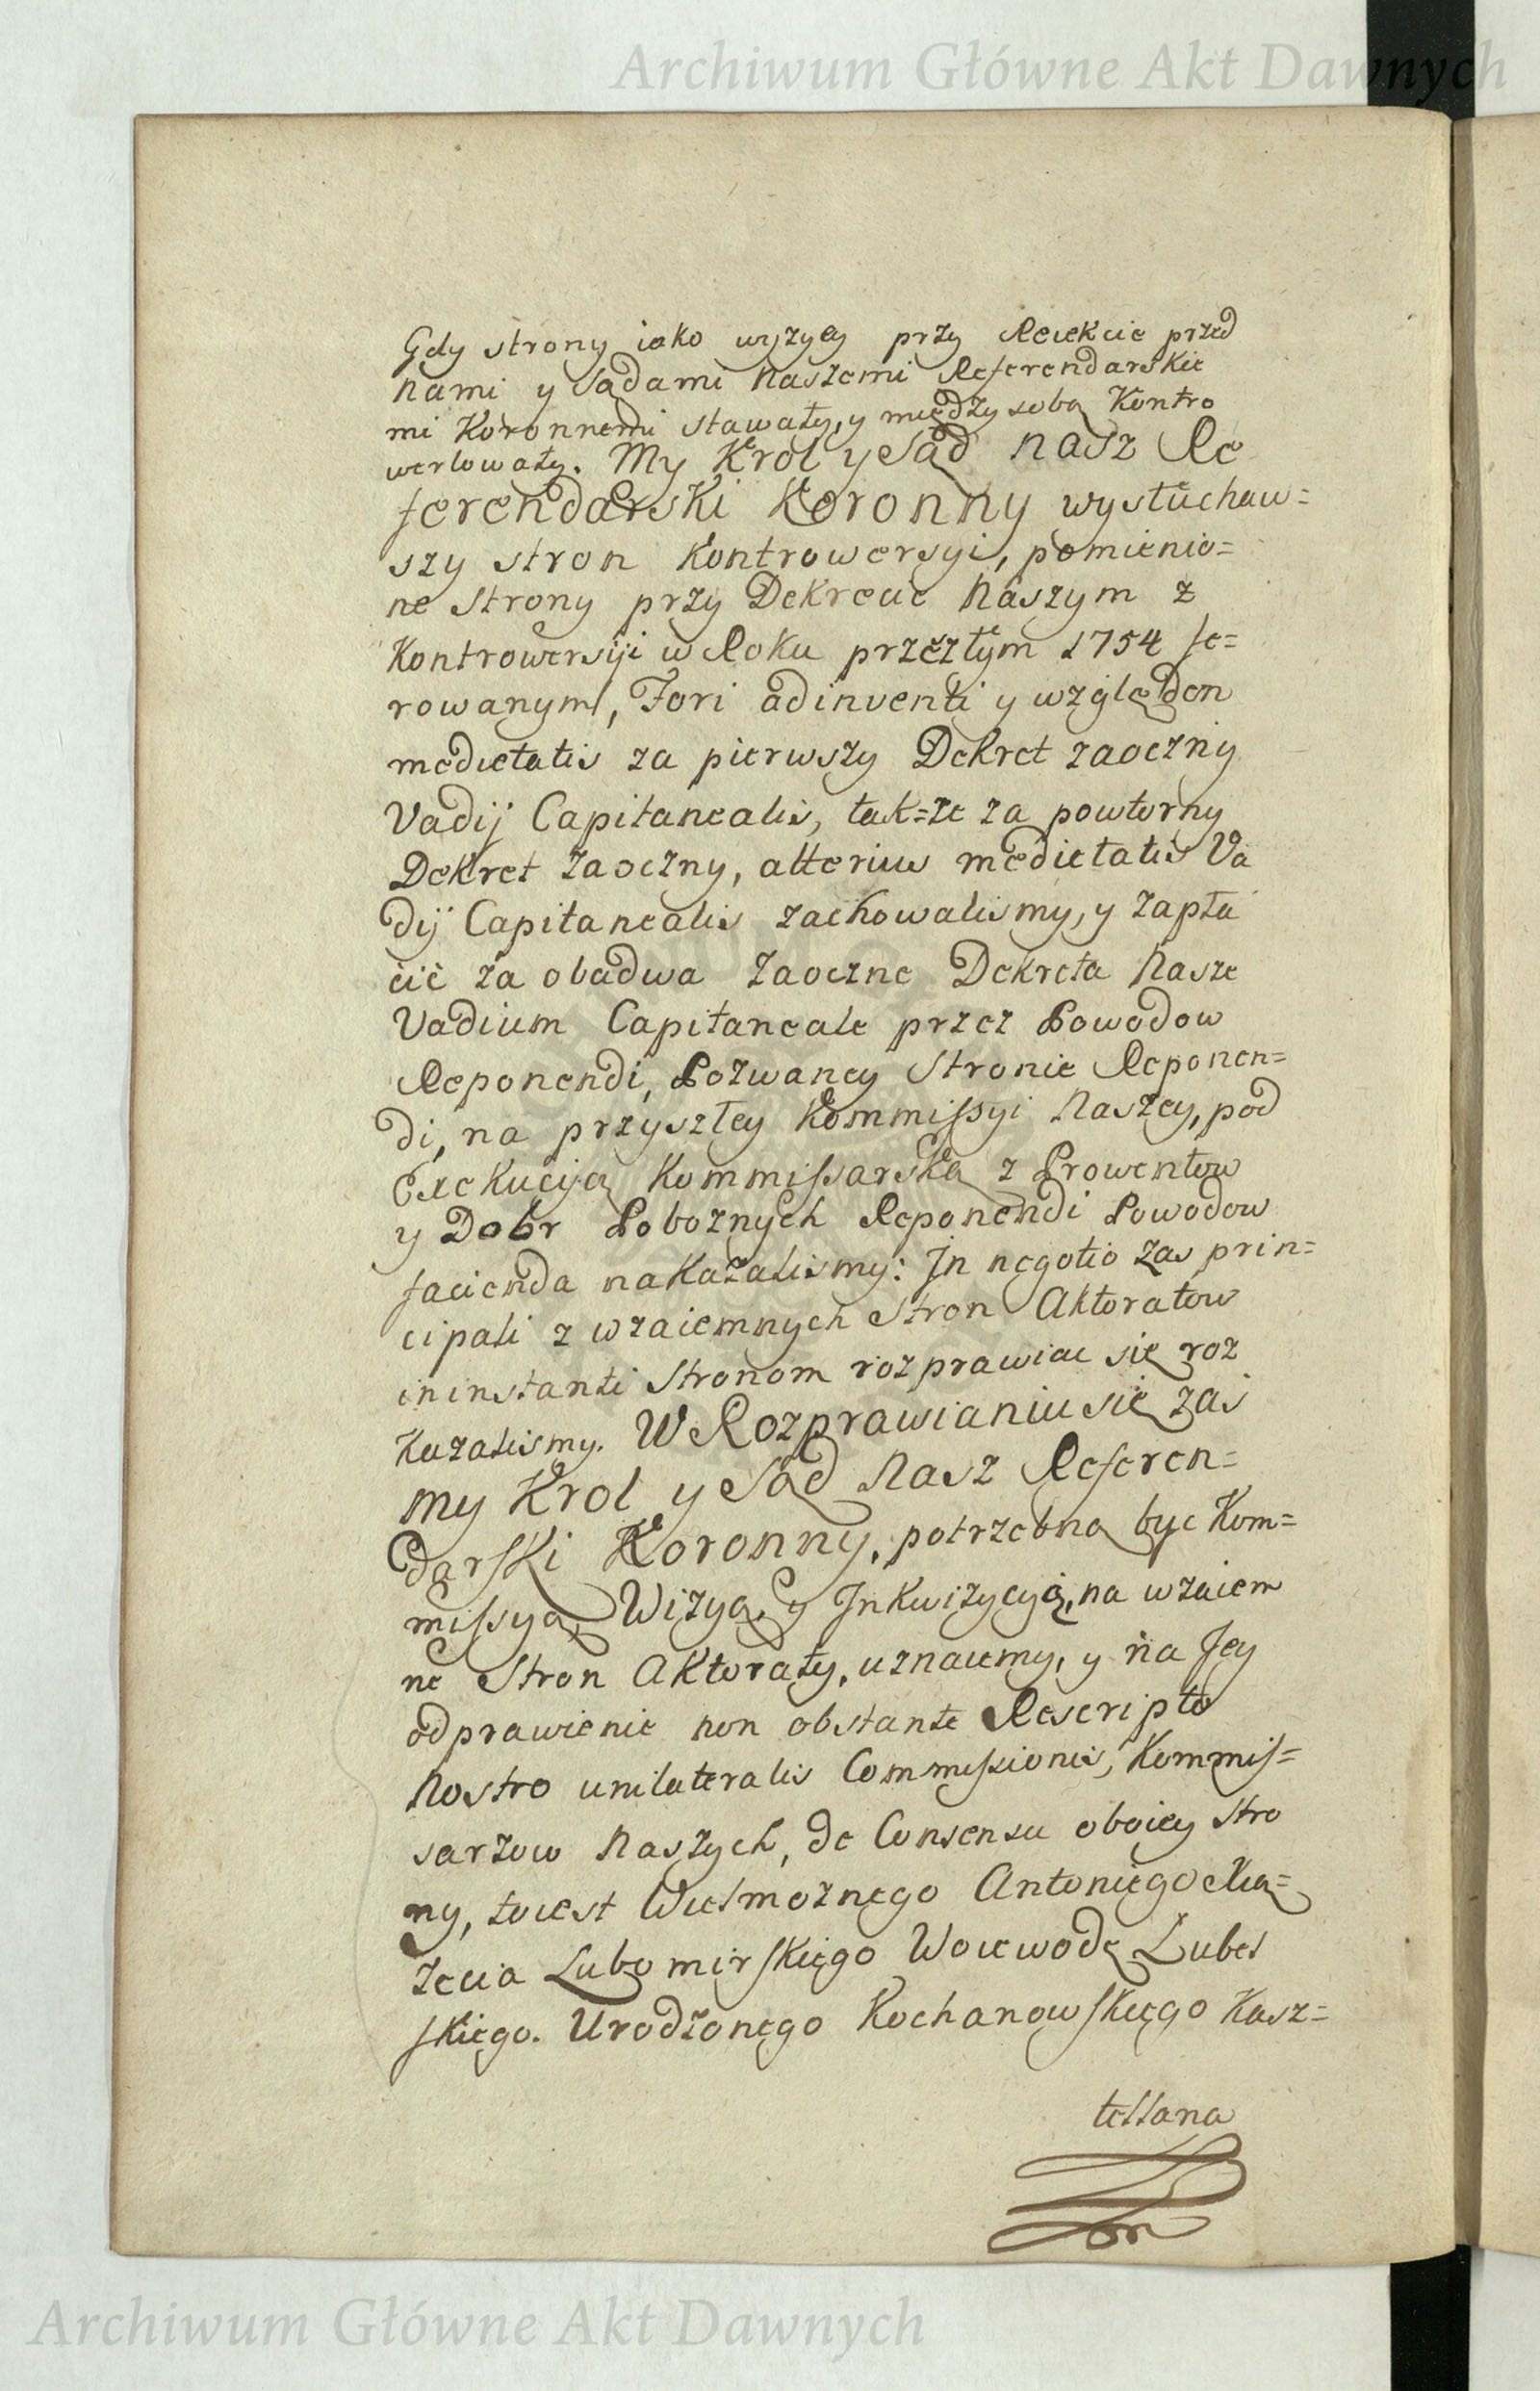 Archiwum Główne Akt Dawnych
Gdy strony iako wyzyey przy Reiekcie przed
nami y Sądami Naszemi Referendarskie
mi Koronnemi stawały, y między sobą Kontro
wertowały. My Krol y Sąd nasz Re
ferendarski Koronny wysłuchaw=
szy stron Kontrowersyi, pomienio=
ne Strony przy Dekrecie Naszym z
Kontrowersyi w Roku przeszłym 1754 fe=
rowanym, Fori adinventi y względem
medietatis za pierwszy Dekret zaoczny
Vadij Capitanealis, tak=że za powtorny
Dekret zaoczny, alterius medietatis Va
dij Capitanealis zachowalismy, y zapła
cić za obadwa zaoczne Dekreta Nasze
Vadium Capitaneale przez Powodow
Reponendi, Pozwaney Stronie Reponen=
di, na przyszłey Kommissyi Naszey, pod
Exekucyą Kommissarską z Prowentow
y Dobr Pobożnych Reponendi Powodow
facienda nakazalismy: In negotio zas prin=
cipali z wzaiemnych Stron Aktoratow
in instanti Stronom rozprawiac się roz
kazalismy. W Rozprawianiu się zaś
my Krol y Sąd Nasz Referen=
darski Koronny, potrzebną byc Kom=
missyą, Wizyą, y Inkwizycyą, na wzaiem
ne Stron Aktoraty, uznaiemy, y na Jey
odprawienie non obstante Rescripto
Nostro unilateralis Commissionis, Kommis=
sarzow Naszych, de Consensu oboiey stro
ny, toiest Wielmożnego Antoniego Xią=
żęcia Lubomirskiego Woiewodę Lubel
skiego. Urodzonego Kochanowskiego Kasz=
tellana
Archiwum Główne Akt Dawnych